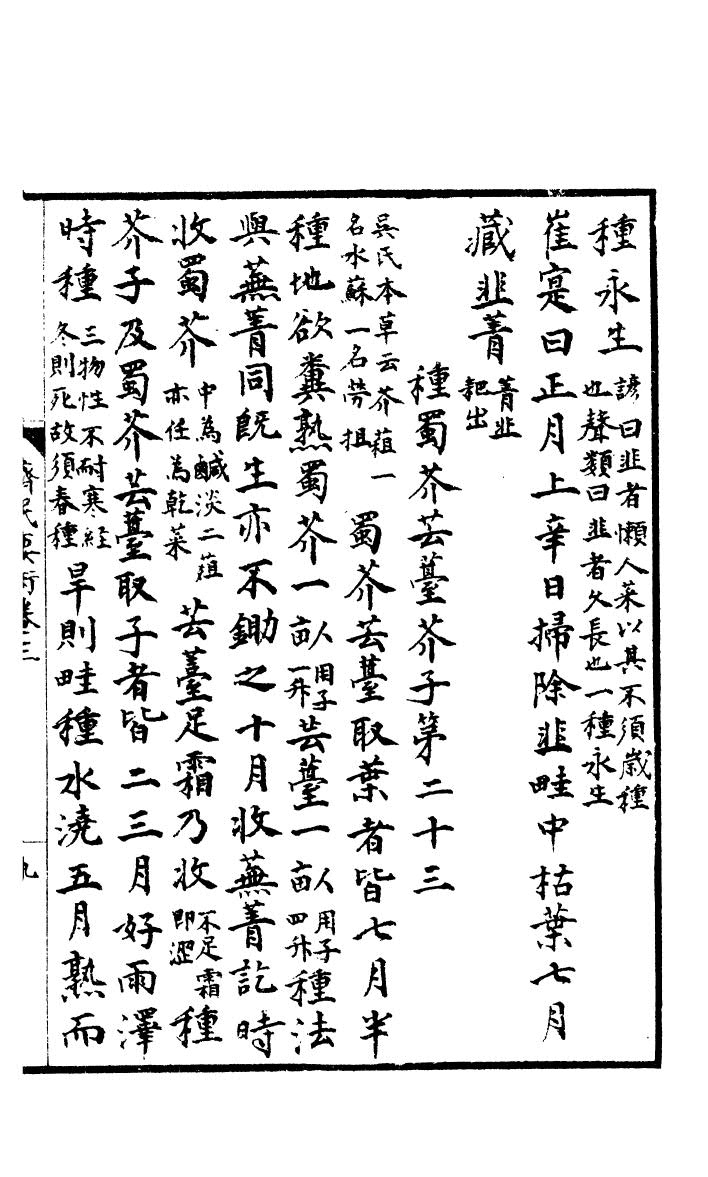 種永生諺曰韭者懶人菜以其不須歲種也聲類曰韭者久長也一種永生
崔寔曰正月上辛日掃除韭畦中枯葉七月
藏韭菁菁韭耙出
種蜀芥芸薹芥子第二十三
吳氏本草云芥葅一名水蘇一名勞抯蜀芥芸薹取葉者皆七月半
種地欲糞熟蜀芥一畝用子一升芸薹一畝用子四升種法
與蕪菁同既生亦不鋤之十月收蕪菁訖時
收蜀芥中為鹹淡二葅亦任為乾菜芸薹足霜乃收不足霜即澀種
芥子及蜀芥芸薹取子者皆二三月好雨澤
時種三物性不耐寒經冬則死故須春種旱則畦種水澆五月熟而
齊民要術卷三
九